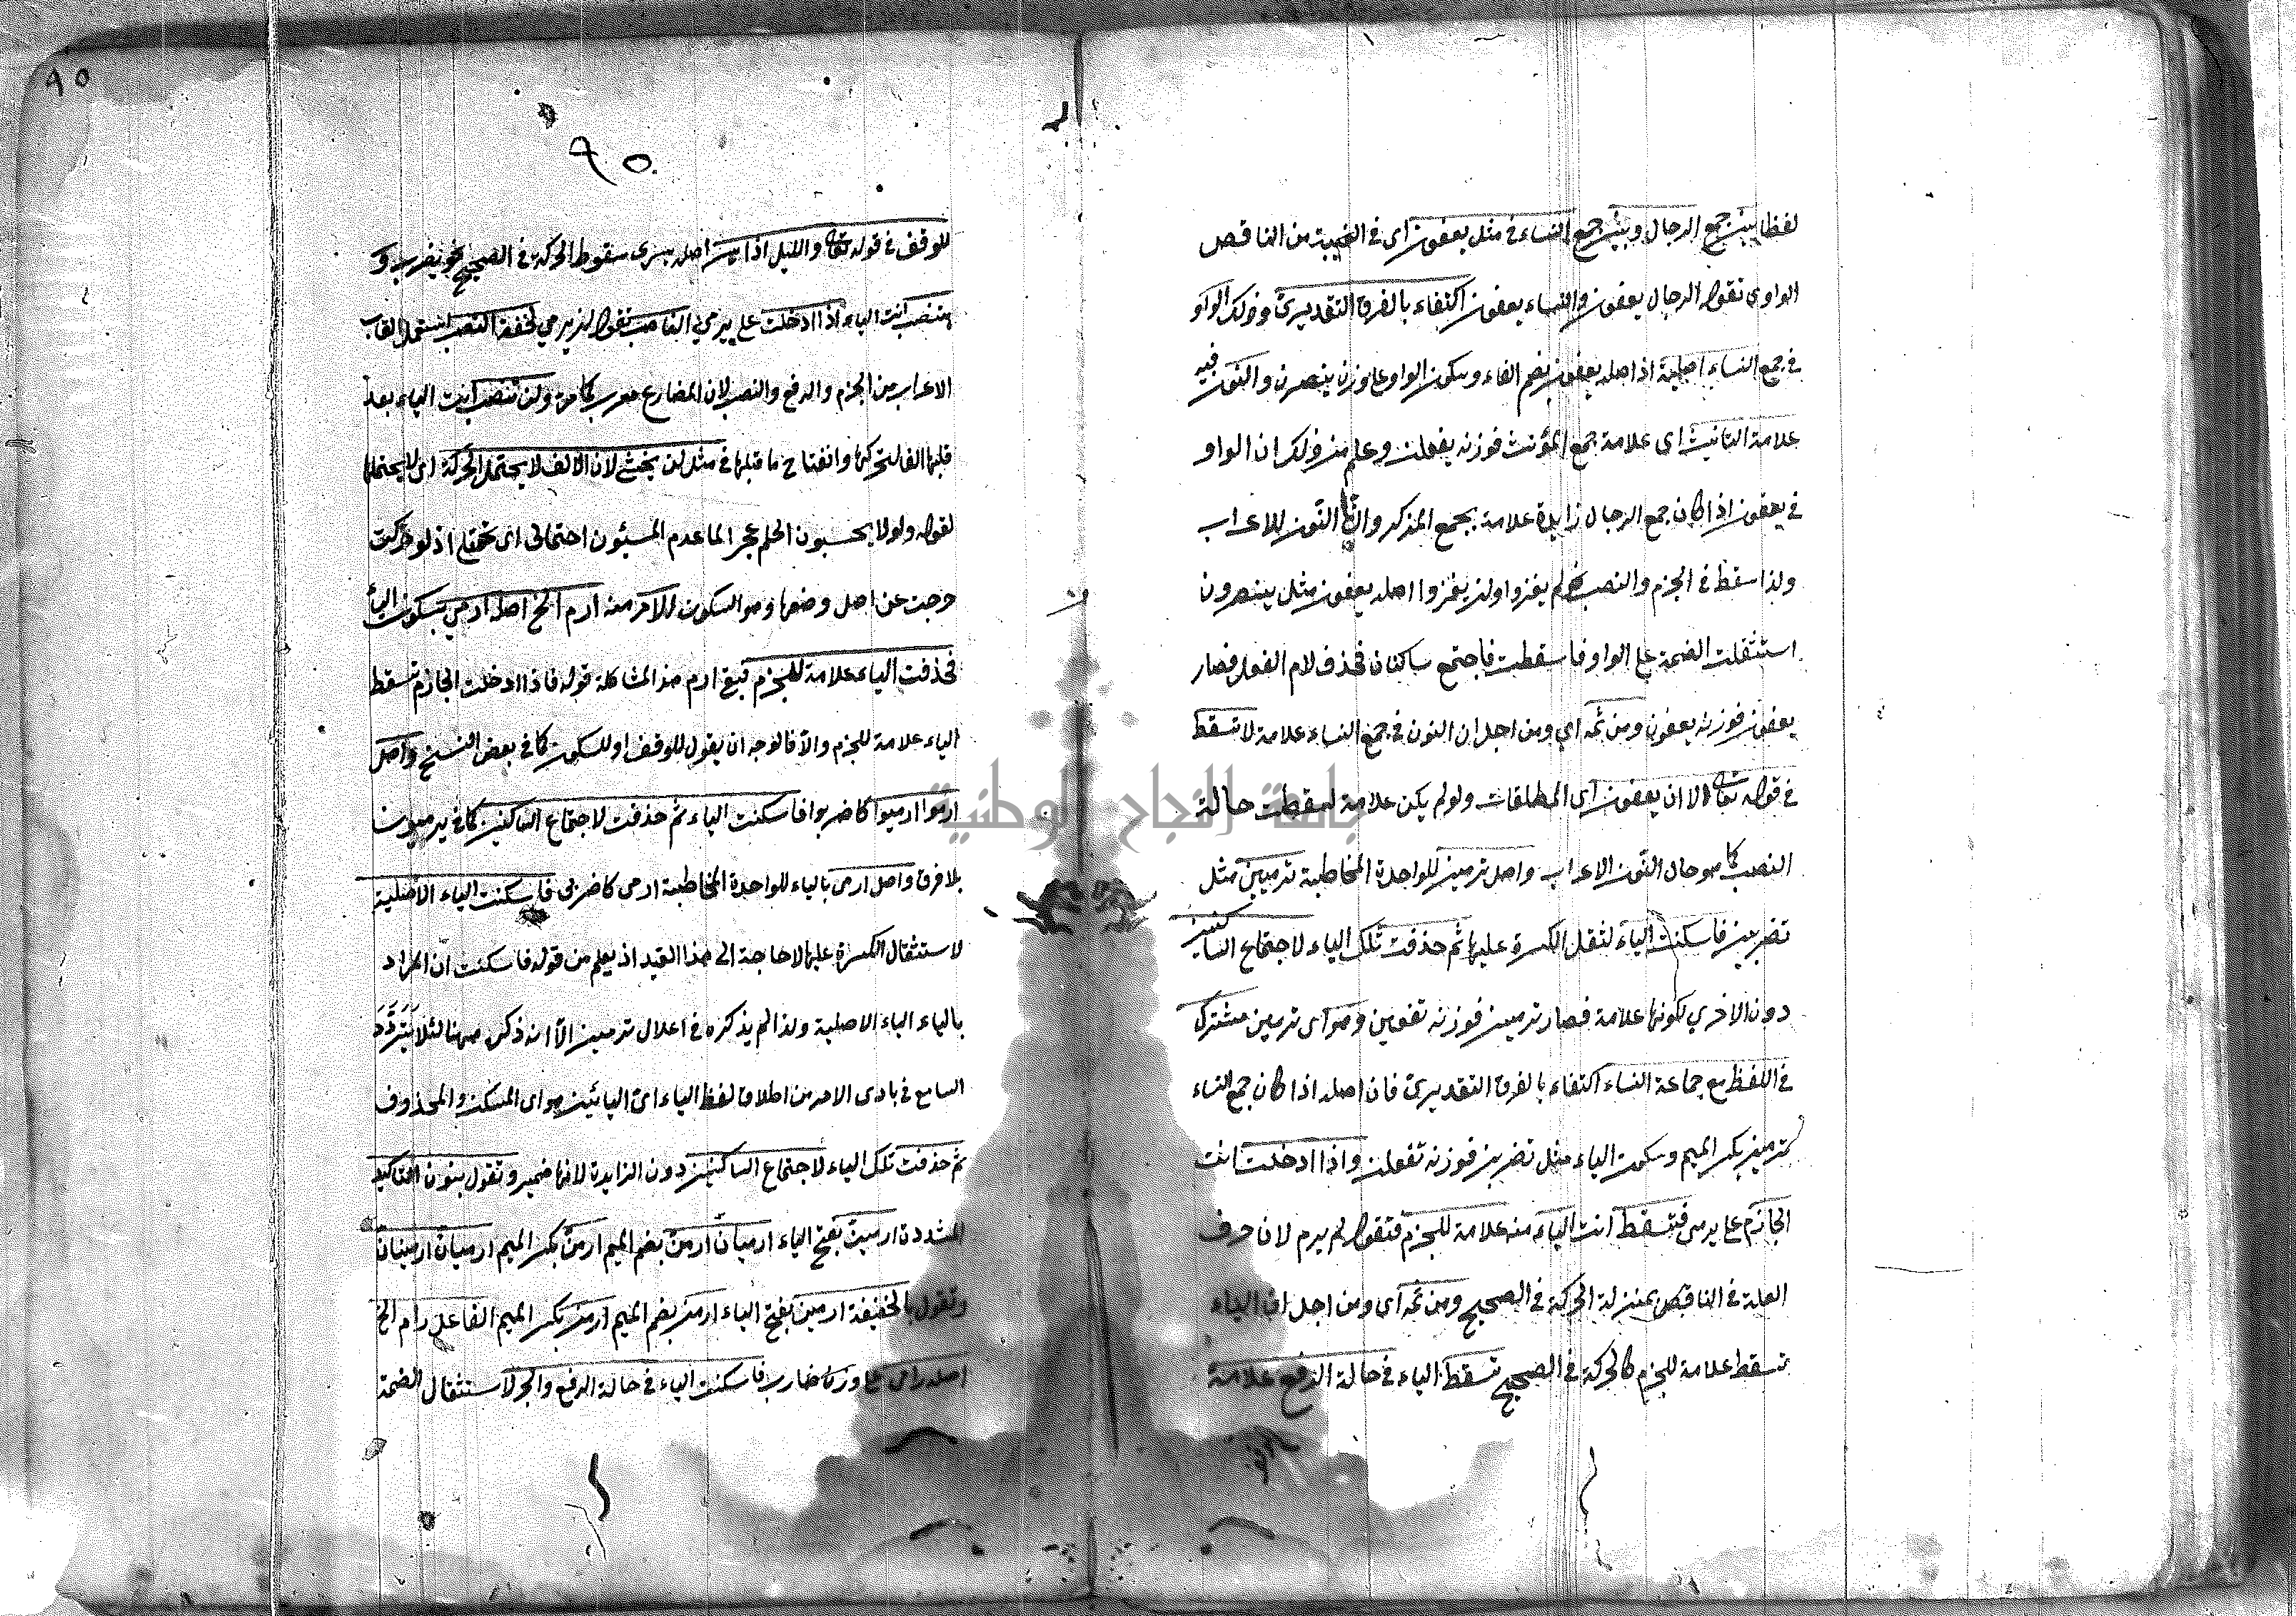 لفظا بين جمع الرجال وبين جمع النساء في مثل يعفون اى في الغيبة من الناقص
الواوي تقول الرجال يعفون والنساء يعفون اكتفاء بالفرق التقديرى وذلك الواو
في جمع النساء اصلية اذ اصله يعفون بضم الفاء وسكون الواو على وزن ينصرن والنون فيه
علامة التانيث اى علامة جمع المؤنث فوزنه يفعلن وعلم من ذلك ان الواو
في يعفون اذا كان جمع الرجال زايدة علامة لجمع المذكر وان النون للاعراب
ولذا سقط في الجزم والنصب نحو لم يغزوا ولن يغزوا اصله يعفون مثل ينصرون
استثقلت الضمة على الواو فاسقطت فاجتمع ساكنان فحذف لام الفعل فصار
يعفون فوزنه يعفون ومن ثمه اي ومن اجل ان النون في جمع النساء علامة لا تسقط
في قوله تعالى الا ان يعفون اى المطلقات ولو لم يكن علامة لسقطت حالة
النصب كما هو حال النون الاعراب واصل ترمين للواحدة المخاطبة ترميين مثل
تضربين فاسكنت الياء لثقل الكسرة عليها ثم حذفت تلك الياء لاجتماع الساكنين
دون الاخري لكونها علامة فصار ترمين فوزنه تفعين وهو اى ترمين مشترك
في اللفظ مع جماعة النساء اكتفاء بالفرق التقديرى فان اصله اذا كان جمع النساء
ترمين بكسر الميم وسكون الياء مثل تضربن فوزنه تفعلن واذا ادخلت انت
الجازم على يرمى فتسقط انت الياء منه علامة للجزم فتقول لم يرم لان حرف
العلة في الناقص بمنزلة الحركة في الصحيح ومن ثمه اى ومن اجل ان الياء
تسقط علامة للجزم كالحركة في الصحيح تسقط الياء في حالة الرفع علامة
٩٥
٩٥
للوقف في قوله تعالى والليل اذا يسر اصله يسرى سقوط الحركة في الصحيح نحو يضرب و
ينصب انت الياء اذا ادخلت على يرمي الناصب تقول لن يرمي لخفة النصب
الاعراب من الجزم والرفع والنصب لان المضارع معرب كما مر ولن تنصب انت الياء بعد
قلبها الفا لتحركها وانفتاح ما قبلها في مثل لن يخشى لان الالف لا يحتمل الحركة اى لا يحتملها
لقوله ولولا يحسبون الحلم عجزا لما عدم المسيئون احتمالى اى تحملى اذ لو حركت
خرجت عن اصل وضعها وهو السكون الامر منه ارم الخ اصله ارمي بسكون الياء
فحذفت الياء علامة للجزم فبقي ارم هذا لمشاكلة قوله فاذا ادخلت الجازم تسقط
الياء علامة للجزم والا فالوجه ان يقول للوقف او للسكون كما في بعض النسخ واصل
ارموا ارميوا كاضربوا فاسكنت الياء ثم حذفت لاجتماع الساكنين كما في يرميون
بلا فرق واصل ارمى بالياء للواحدة المخاطبة ارمى كاضربى فاسكنت الياء الاصلية
لاستثقال الكسرة عليها لا حاجة الى هذا القيد اذ يعلم من قوله فاسكنت ان المراد
بالياء الياء الاصلية ولذا لم يذكره في اعلال ترمين الا انه ذكر ههنا لئلا يتردد
السامع في بادى الامر من اطلاق لفظ الياء اى اليائين هو اى المسكن والمحذوف
ثم حذفت تلك الياء لاجتماع الساكنين دون الزايدة لانها ضمير وتقول بنون التاكيد
المشددة ارمين بفتح الياء ارميان ارمن بضم الميم ارمن بكسر الميم ارميان ارمينان
وتقول بالخفيفة ارمين بفتح الياء ارمن بضم الميم ارمن بكسر الميم الفاعل رام الخ
اصله رامى على وزن ضارب فاسكنت الياء في حالة الرفع والجر لاستثقال الضمة
جامعة النجاح الوطنية